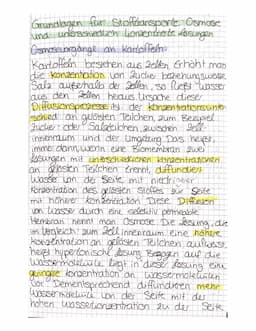 Grundlagen für Stofftransporte Osmose
und unterschiedlich konzentrierte Lösungen
Osmosevorgänge an Kartoffeln
Kartoffeln bestehen aus Zellen Erhöht man
die Konzentration von Zucker beziehungsweise
Salz außerhalb der Zellen, so fließt Wasser
aus den Zellen heraus. Ursache dieser
Diffusionsprozesse ist der Konzentrationsunter-
schied an gelösten Teilchen, zum Beispiel
Zucker- oder Salzteilchen, zwischen Zell-
innenraum und der Umgebung. Das heißt,
immer dann, wenn eine Biomembran zwei
Lösungen mit unterschiedlichen Konzentrationen
an gelösten Teilchen trennt, diffundiert
Wasser von der Seite mit niedriger
Konzentration des gelösten Stoffes zur Seite
mit höherer Konzentration Diese Diffusion
von Wasser durch eine selektiv permeable
Membran nennt man Osmose. Die Lösung, die
im Vergleich zum Zellinnenraum eine höhere
Konzentration an gelösten Teilchen aufweist,
heißt hypertonische Lösung Bezogen auf die
Wassermoleküle liegt in dieser Lösung eine
geringere Konzentration an Wassermolekülen
vor. Dementsprechend diffundieren mehr
Wassermoleküle von der Seite mit der
hohen Wasserkonzentration zu der Seite